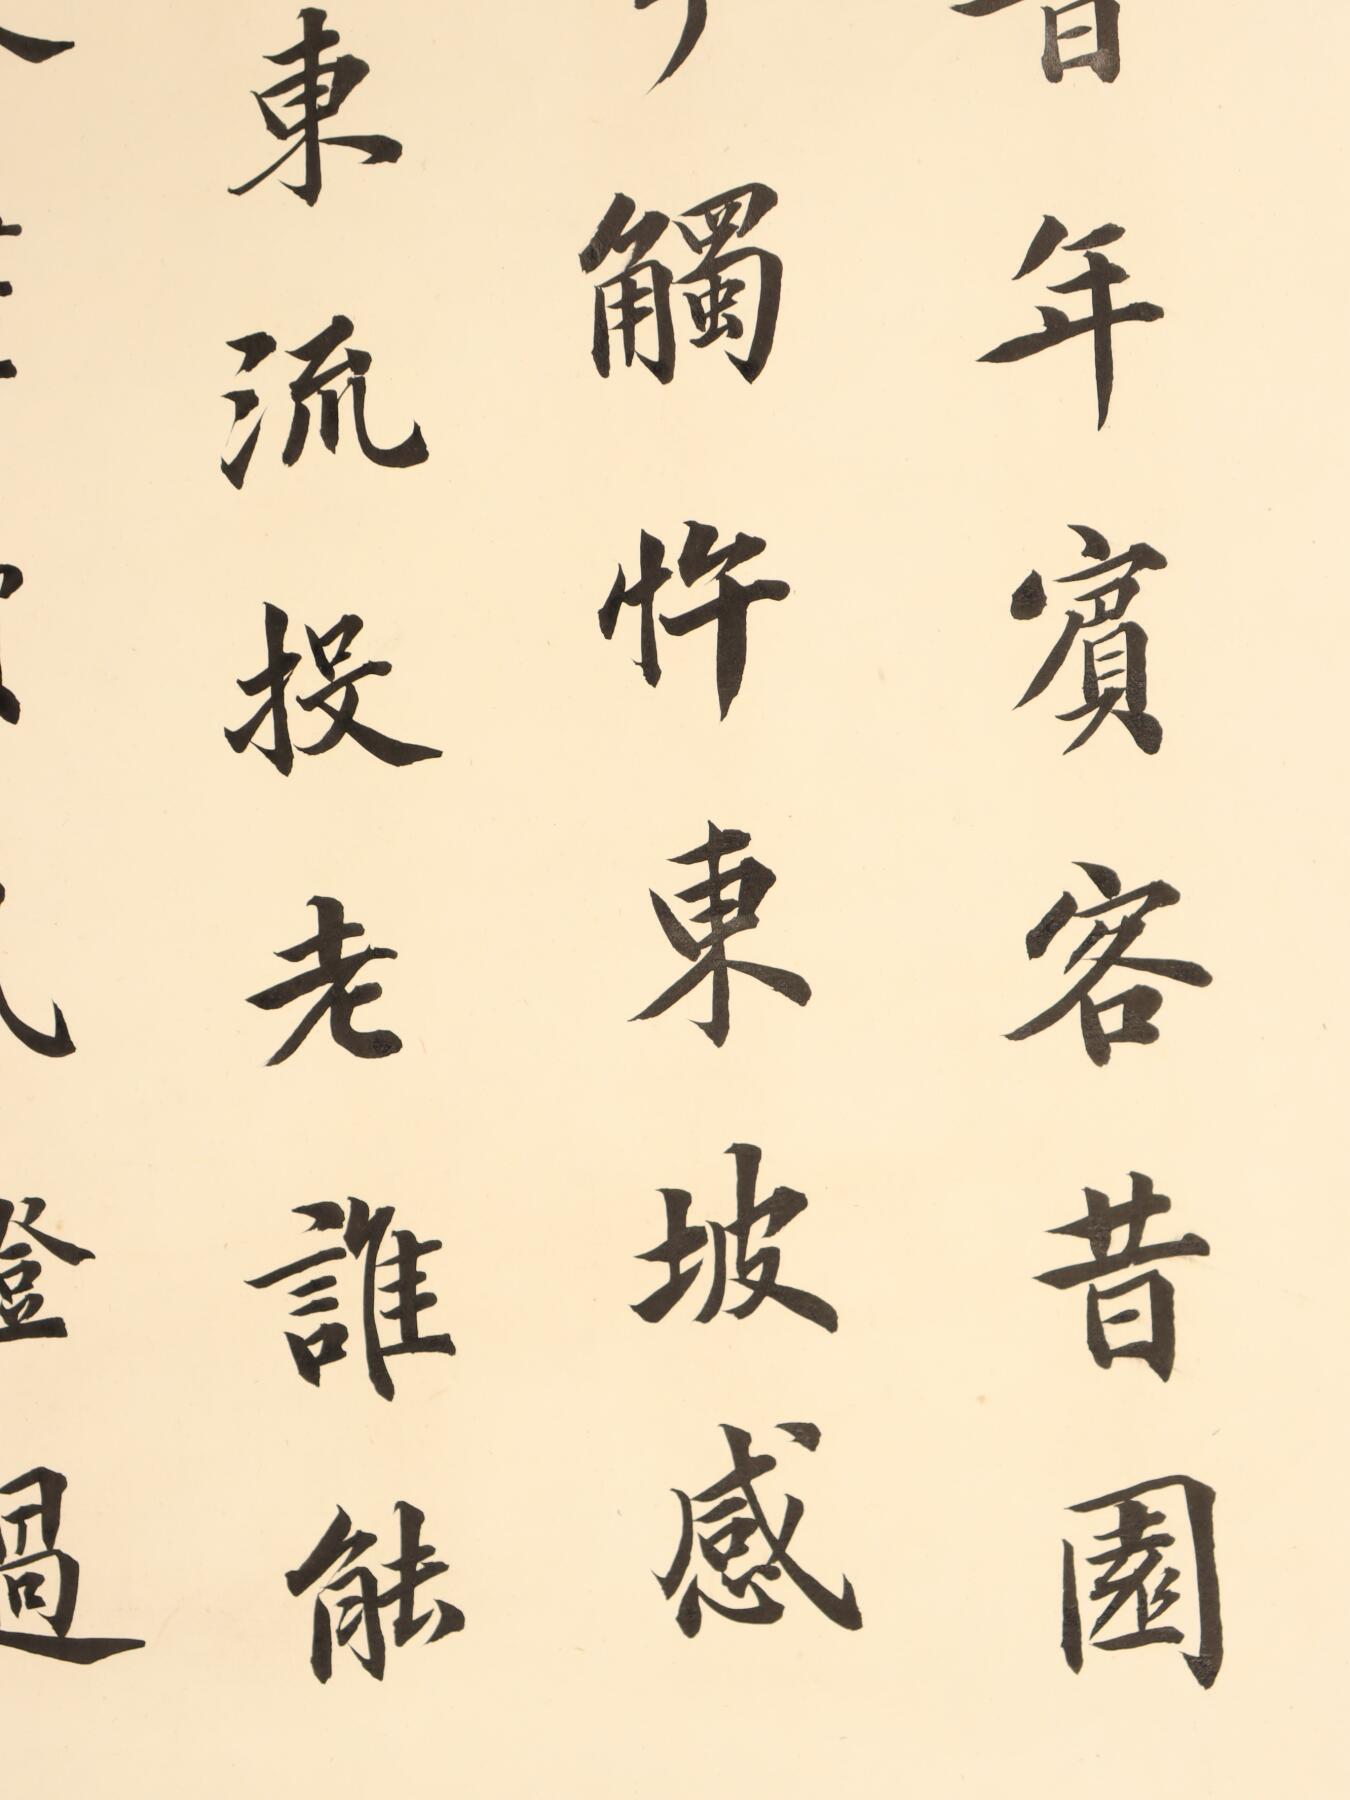 年賓客昔園
觸忤東坡感
東流投老誰能
過